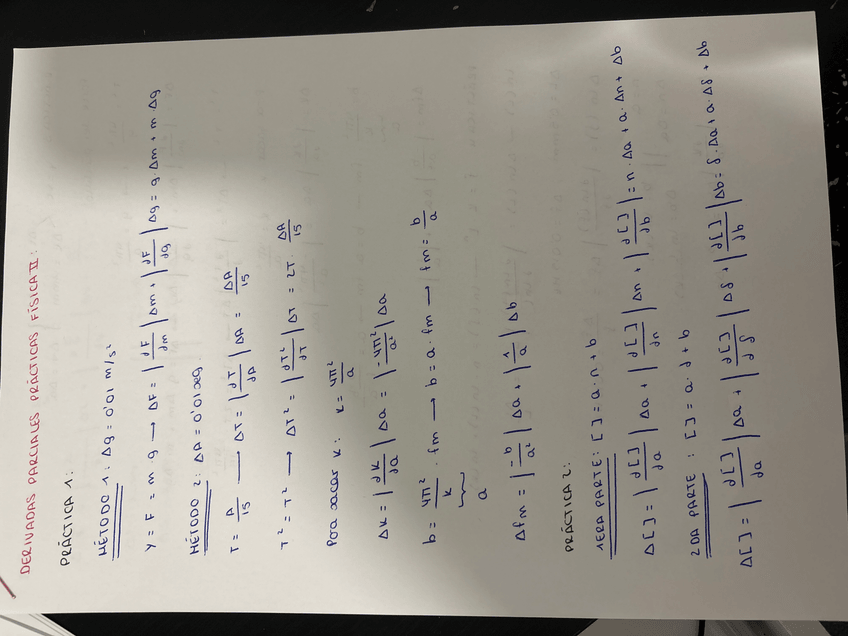 DERIVADAS PARCIALES PRÁCTICAS FÍSICA II:
PRÁCTICA 1:
MÉTODO 1: Δg = 0'01 m/s²
Y = F = m·g → ΔF = |dF/dm| Δm + |dF/dg| Δg = g·Δm + m Δg
MÉTODO 2: ΔA = 0'01 seg.
T = A/15 → ΔT = |dT/dA| ΔA = ΔA/15
T² = T² → ΔT² = |dT²/dT| ΔT = 2T · ΔA/15
Para sacar k: k = 4π²/a
Δk = |dk/da| Δa = |-4π²/a²| Δa
b = 4π²/k · fm → b = a·fm → fm = b/a
a
Δfm = |-b/a²| Δa + |1/a| Δb
PRÁCTICA 2:
1ERA PARTE: [ ] = a·n + b
Δ[ ] = |d[ ]/da| Δa + |d[ ]/dn| Δn + |d[ ]/db| = n·Δa + a·Δn + Δb
2DA PARTE: [ ] = a·d + b
Δ[ ] = |d[ ]/da| Δa + |d[ ]/dδ| Δδ + |d[ ]/db| Δb = δ·Δa + a·Δδ + Δb